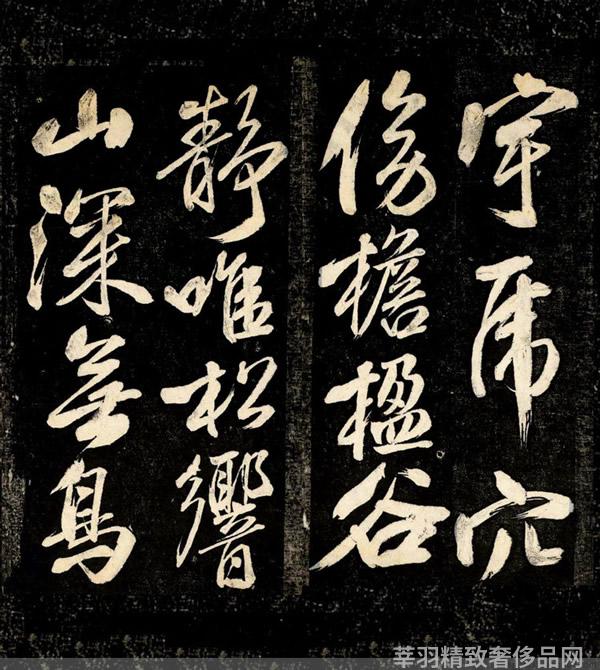 宇虎穴
傍檐楹谷
靜唯松響
山深無鳥
莘羽精致奢侈品网